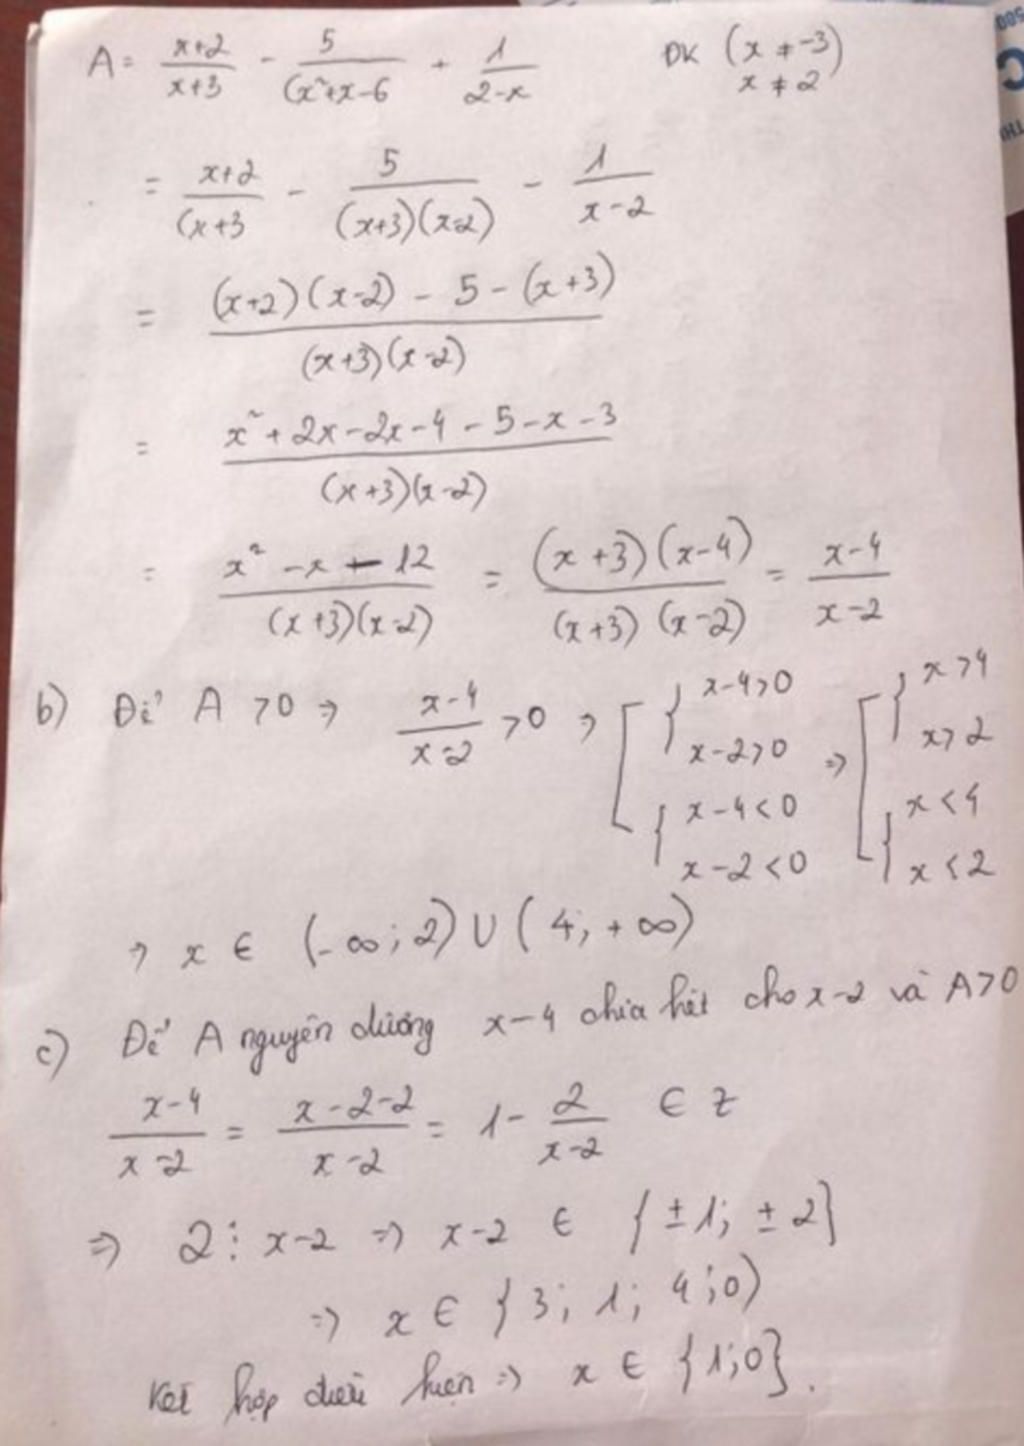 A = \frac{x+2}{x+3} - \frac{5}{(x^2+x-6} + \frac{1}{2-x} ĐK (x ≠ -3)
x ≠ 2
= \frac{x+2}{(x+3} - \frac{5}{(x+3)(x-2)} - \frac{1}{x-2}
= \frac{(x+2)(x-2) - 5 - (x+3)}{(x+3)(x-2)}
= \frac{x^2+2x-2x-4-5-x-3}{(x+3)(x-2)}
= \frac{x^2-x-12}{(x+3)(x-2)} = \frac{(x+3)(x-4)}{(x+3)(x-2)} = \frac{x-4}{x-2}
b) Để A >0 => \frac{x-4}{x-2} >0 => [ { x-4>0 ; x-2>0 ; { x-4<0 ; x-2<0 => [ { x>4 ; x>2 ; { x<4 ; x<2
=> x ∈ (-∞; 2) ∪ (4; +∞)
c) Để A nguyên dương x-4 chia hết cho x-2 và A>0
\frac{x-4}{x-2} = \frac{x-2-2}{x-2} = 1 - \frac{2}{x-2} ∈ Z
=> 2 ⋮ x-2 => x-2 ∈ {±1; ±2}
=> x ∈ {3; 1; 4; 0)
Kết hợp điều kiện => x ∈ {1;0}.